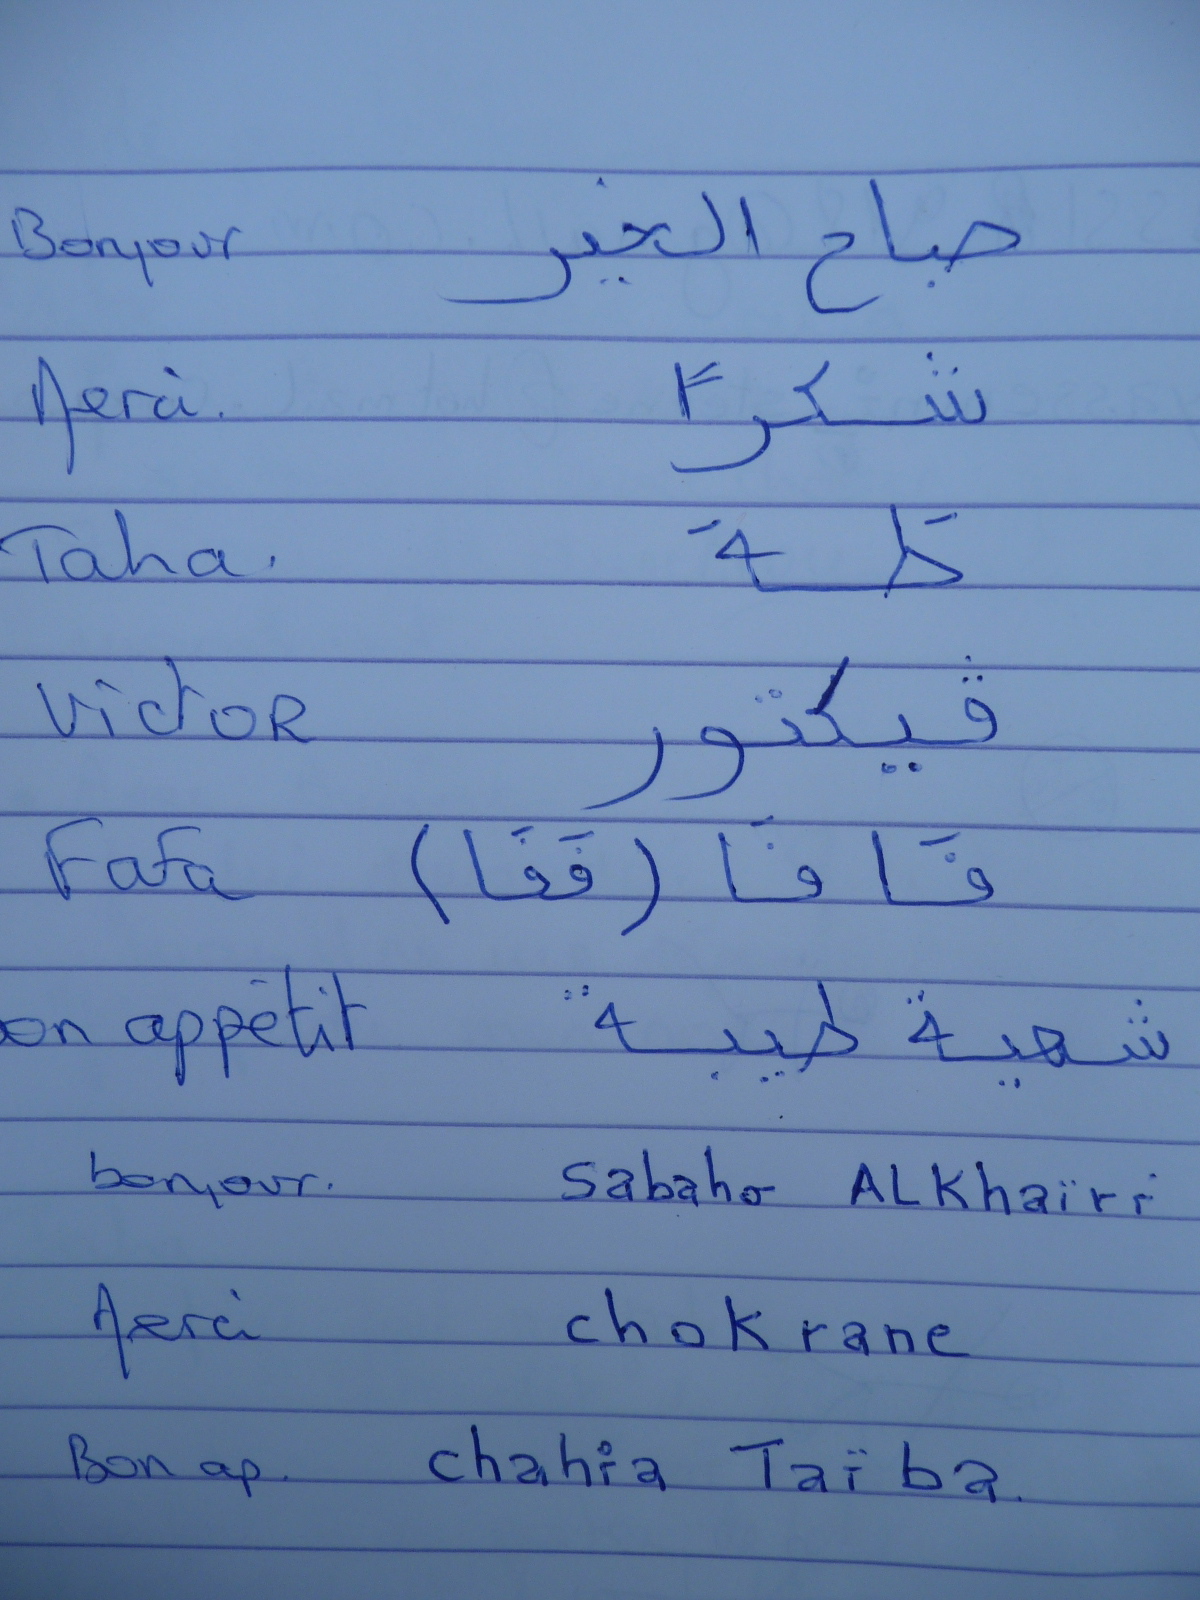 Bonjour صباح الخير
Merci. شكراً
Taha. طَــهَ
Victor ڤيكتور
Fafa فَا فَا (فَفَا)
on appétit شهية طيبة
bonjour. Sabaho ALKhaïri
Merci chokrane
Bon ap. chahia Taïba.